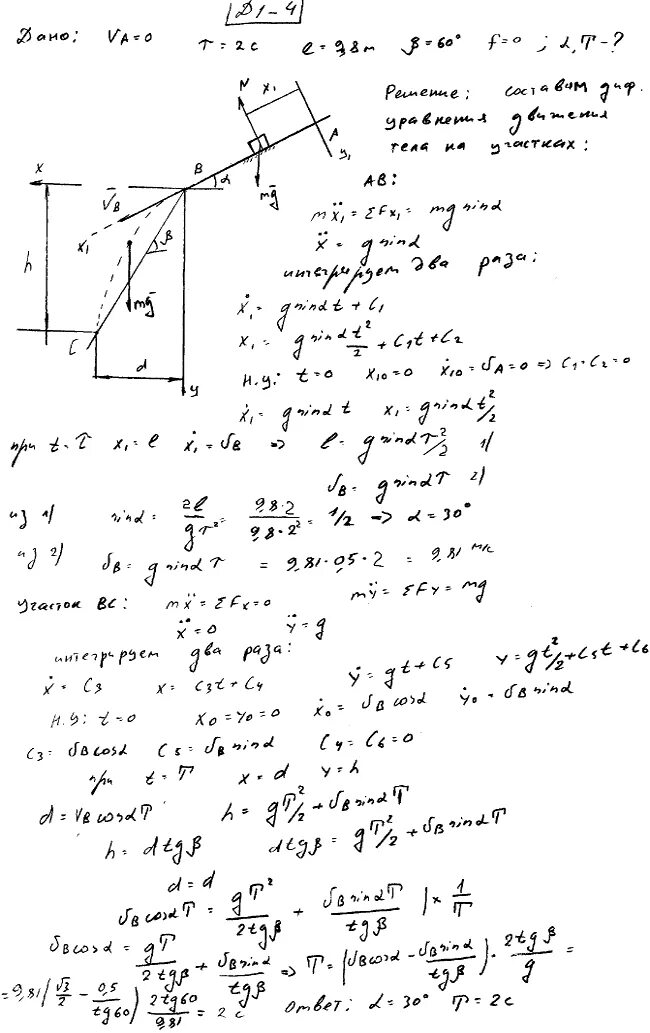 Д1-4
Дано: VA=0 τ=2c l=9,8м β=60° f=0 ; α,T-?
Решение: составим диф.
уравнения движения
тела на участках:
N x₁ A y₁
x B α
V̄B mḡ
x₁ β
h mḡ
C d y
AB:
mẍ₁=ΣFx₁= mg sinα
ẍ = g sinα
интегрируем два раза:
ẋ₁= g sinαt + C₁
x₁= g sinα t²/2 + C₁t + C₂
н.у: t=0 x₁₀=0 ẋ₁₀=υA=0 => C₁=C₂=0
ẋ₁= g sinα t x₁= g sinα t²/2
при t=τ x₁=l ẋ₁=υB => l= g sinα τ²/2 1)
υB= g sinα τ 2)
из 1) sinα= 2l/gτ² = 9,8·2/9,8·2² = 1/2 => α=30°
из 2) υB= g sinα τ = 9,81·0,5·2 = 9,81 м/с
участок BC: mẍ=ΣFx=0 mÿ= ΣFy= mg
ẍ=0 ÿ=g
интегрируем два раза:
ẋ= C₃ x= C₃t+C₄ ẏ= gt+C₅ y= gt²/2+C₅t+C₆
н.у: t=0 x₀=y₀=0 ẋ₀= υB cosα ẏ₀=υB sinα
C₃= υB cosα C₅= υB sinα C₄=C₆=0
при t=T x=d y=h
d= VB cosα T h= gT²/2+υB sinα T
h= d tgβ d tgβ= gT²/2+υB sinα T
d=d
υB cosα T = gT²/2tgβ + υB sinα T/tgβ | × 1/T
υB cosα= gT/2tgβ + υB sinα/tgβ => T= (υB cosα - υB sinα/tgβ) · 2tgβ/g =
=9,81(√3/2 - 0,5/tg60) 2tg60/9,81 = 2c ответ: α=30° T=2c